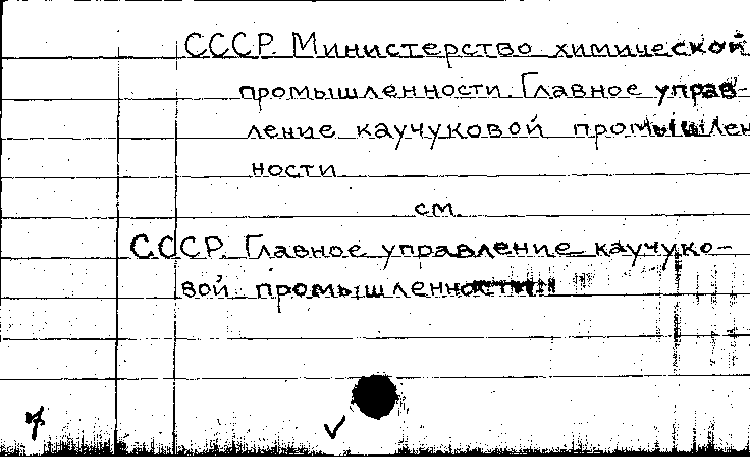 СССР. Министерство химической
промышленности. Главное управ-
ление каучуковой промышлен
ности
см.
СССР. Главное управление каучуко-
вой промышленности